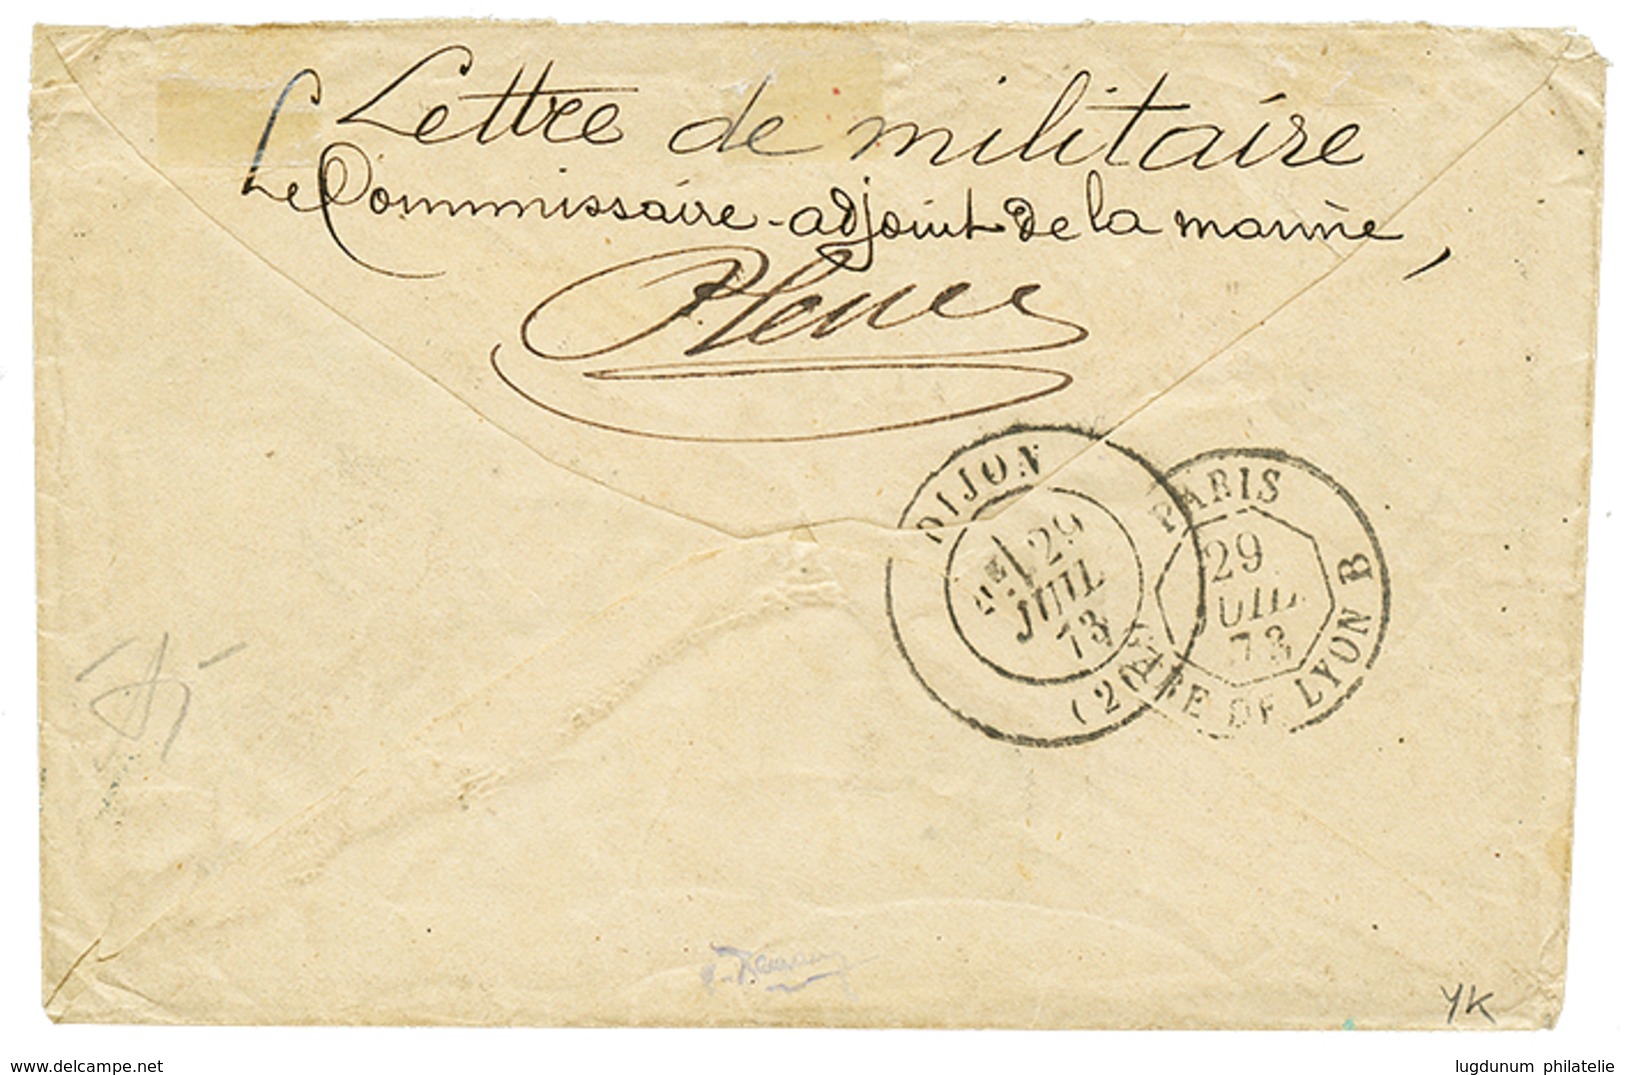 Lettre de militaire
Le Commissaire-adjoint de la marine,
DIJON
2E 29
JUIL
73
(20)
PARIS
29
UIL
73
GARE DE LYON B
YK
delcampe.net
lugdunum philatelie